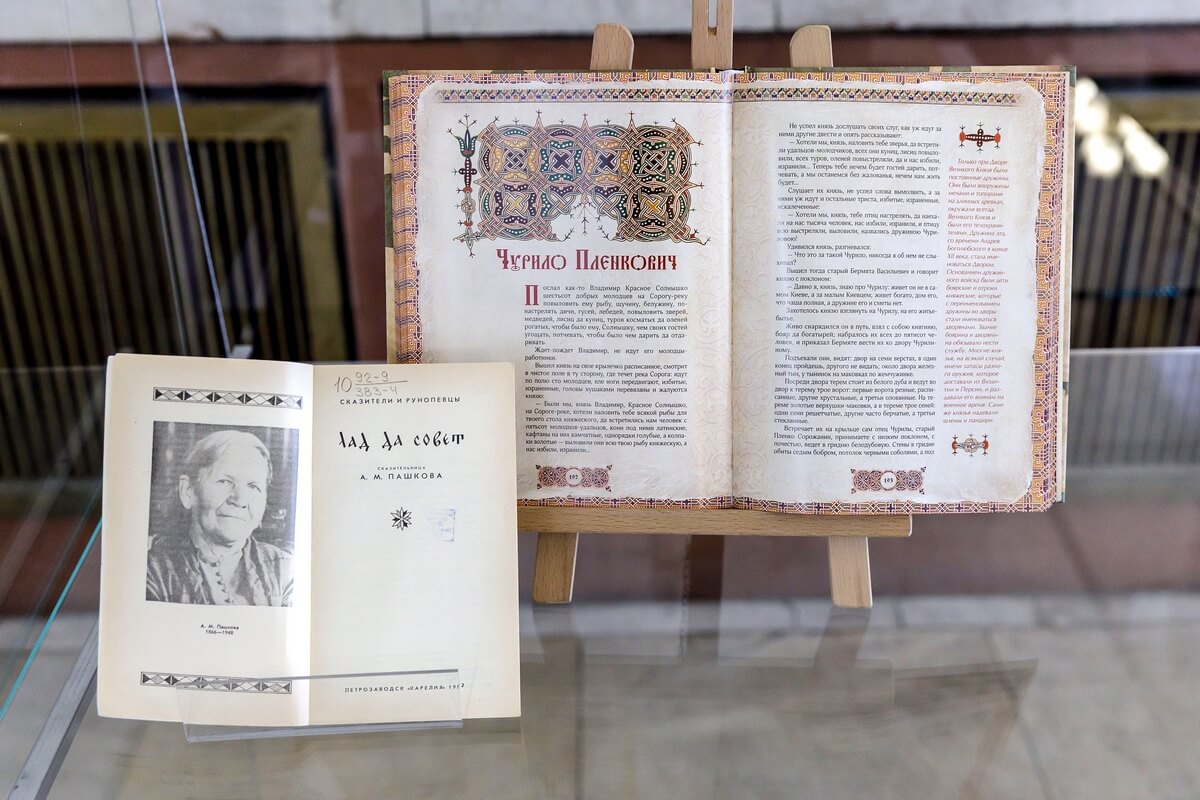 10 92-9
383-4
СКАЗИТЕЛИ И РУНОПЕВЦЫ
Лад да совет
СКАЗИТЕЛЬНИЦА
А. М. ПАШКОВА
А. М. Пашкова
1866—1948
ПЕТРОЗАВОДСК «КАРЕЛИЯ»
Чурило Пленкович
Послал как-то Владимир Красное Солнышко
шестьсот добрых молодцев на Сорогу-реку
повыловить ему рыбу, щучину, белужину, по-
настрелять дичи, гусей, лебедей, повыловить зверей,
медведей, лисиц да куниц, туров косматых да оленей
рогатых, чтобы было ему, Солнышку, чем своих гостей
угощать, потчевать, чтобы было чем дарить да отда-
ривать.
Ждет-пождет Владимир, не идут его молодцы-
работники.
Вышел князь на свое крылечко расписанное, смотрит
в чистое поле в ту сторону, где течет река Сорога: идут
по полю сто молодцев, еле ноги передвигают, избитые,
израненные, головы кушаками перевязаны и жалуются
князю:
— Были мы, князь Владимир, Красное Солнышко,
на Сороге-реке, хотели наловить тебе всякой рыбы для
твоего стола княжеского, да встретились нам человек с
пятьсот молодцев-удальцов, кони под ними латинские,
кафтаны на них камчатные, однорядки голубые, а колпа-
ки золотые — выловили они всю твою рыбу княжескую, а
нас избили, изранили...
192
Не успел князь дослушать своих слуг, как уж идут за
ними другие двести и опять рассказывают:
— Хотели мы, князь, наловить тебе зверья, да встрети-
ли удальцов-молодчиков, всех они куниц, лисиц повыло-
вили, всех туров, оленей повыстреляли, да и нас избили,
изранили... Теперь тебе нечем будет гостей дарить, пот-
чевать, а мы останемся без жалованья, нечем нам жить
будет...
Слушает их князь, не успел слова вымолвить, а за
ними уж идут и остальные триста, избитые, израненные,
искалеченные:
— Хотели мы, князь, тебе птиц настрелять, да наеха-
ли на нас тысяча человек, нас избили, изранили, и птицу
всю выстреляли, выловили, назвались дружиною Чури-
ловою!
Удивился князь, разгневался:
— Что это за такой Чурило, никогда я об нем не слы-
хивал?
Вышел тогда старый Бермята Васильевич и говорит
князю с поклоном:
— Давно я, князь, знаю про Чурилу: живет он не в са-
мом Киеве, а за малым Киевцем, живет богато, дом его,
что чаша полная, а дружине его и сметы нет.
Захотелось князю взглянуть на Чурилу, на его житье-
бытье.
Живо снарядился он в путь, взял с собою княгиню,
бояр да богатырей; набралось их всех до пятисот че-
ловек, и приказал Бермяте вести их ко двору Чурили-
ному.
Подъехали они, видят: двор на семи верстах, в один
конец пройдешь, другого не видать; около двора желез-
ный тын, у тынинок на маковках по жемчужинке.
Посреди двора терем стоит из белого дуба и ведут во
двор к терему трое ворот: первые ворота резные, распи-
санные, другие хрустальные, а третьи оловянные. На те-
реме золотые верхушки-маковки, а в тереме трое сеней:
одни сени решетчатые, другие часто берчатые, а третьи
стеклянные.
Встречает их на крыльце сам отец Чурилы, старый
Пленко Сорожанин, принимает с низким поклоном, с
почестью, ведет в гридню белодубовую. Стены в гридне
обиты седым бобром, потолок черными соболями, а пол
193
Только при Дворе
Великого Князя были
постоянные дружины.
Они были вооружены
мечами и топорами
на длинных древках,
окружали всегда
Великого Князя и
были его телохрани-
телями. Дружина эта,
со времени Андрея
Боголюбского в конце
XII века, стала име-
новаться Двором.
Основанием дружин-
ного войска были дети
боярские и отроки
княжеские, которые
с переименованием
дружины во двор
стали именоваться
дворянами. Звание
боярина и дворяни-
на обязывало нести
службу. Многие кня-
зья, на всякий случай,
имели запасы разно-
го оружия, которое
доставали из Визан-
тии и Персии, и раз-
давали его воинам на
военное время. Сами
же князья надевали
шлемы и панцири.